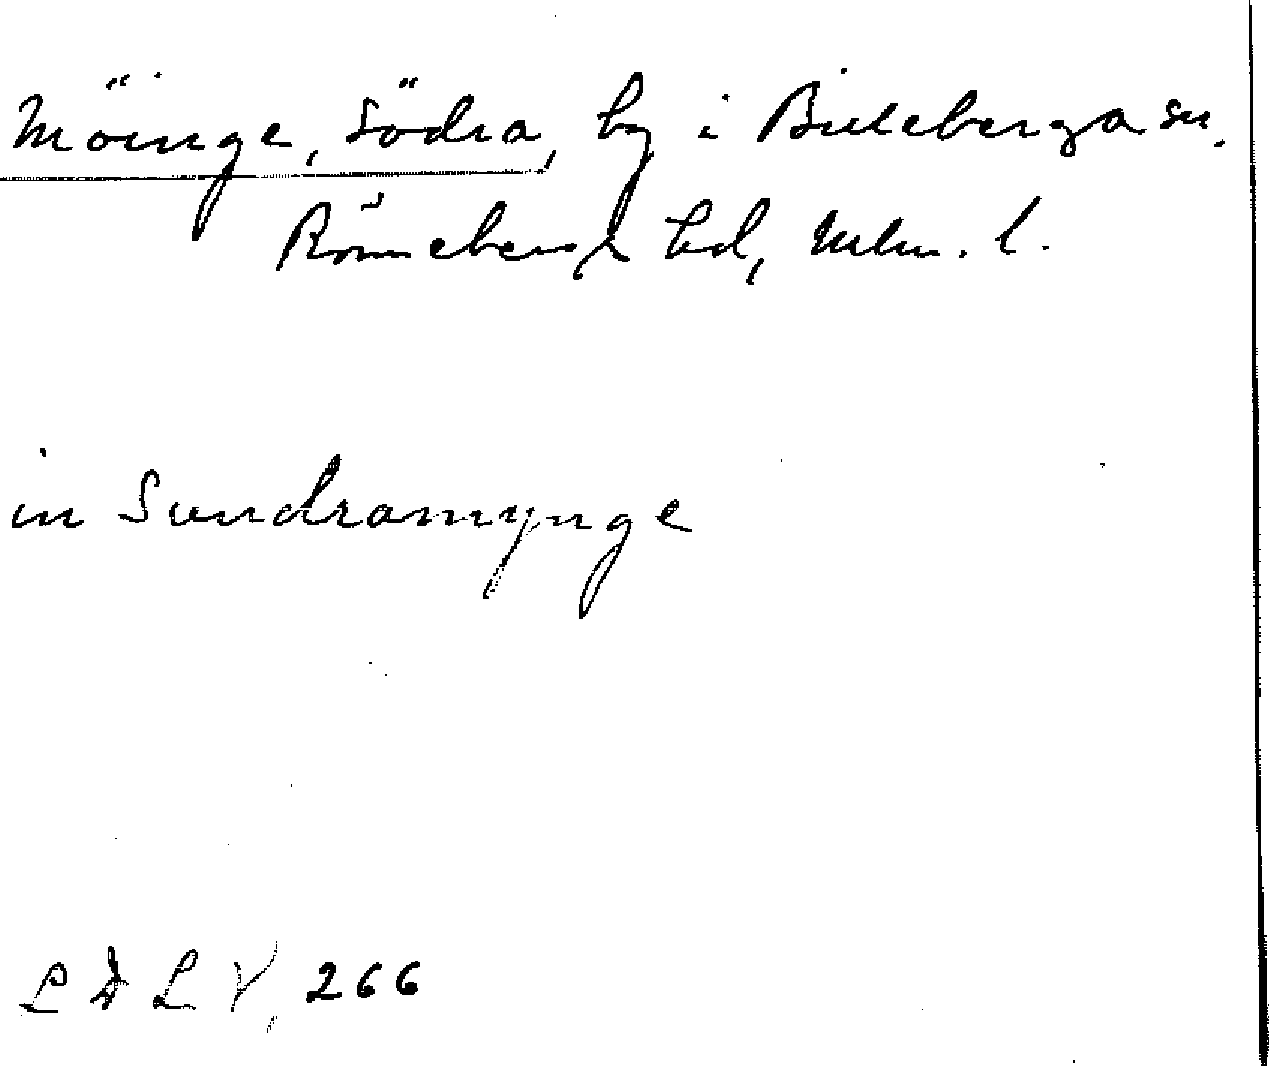 Möinge, Södra, by i Billeberga sn.
Rönneberga hd, Mlm. l.
in Sundramynge
LDL V, 266